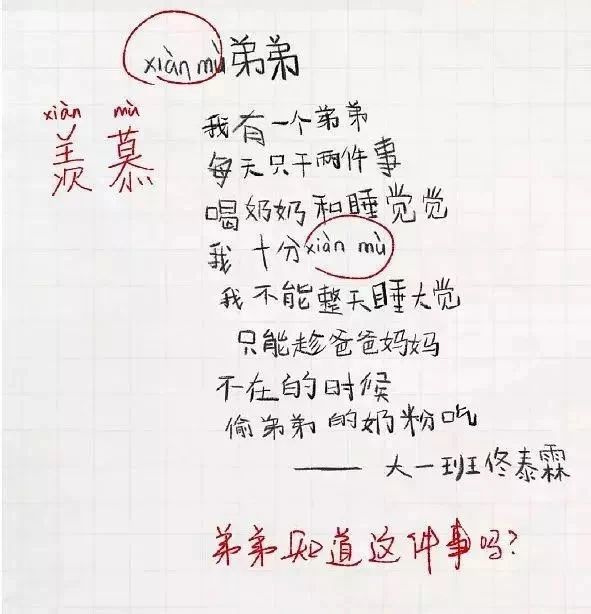 xiàn mù弟弟
xiàn mù
羡慕
我有一个弟弟
每天只干两件事
喝奶奶和睡觉觉
我十分xiàn mù
我不能整天睡大觉
只能趁爸爸妈妈
不在的时候
偷弟弟的奶粉吃
—— 大一班佟泰霖
弟弟知道这件事吗?